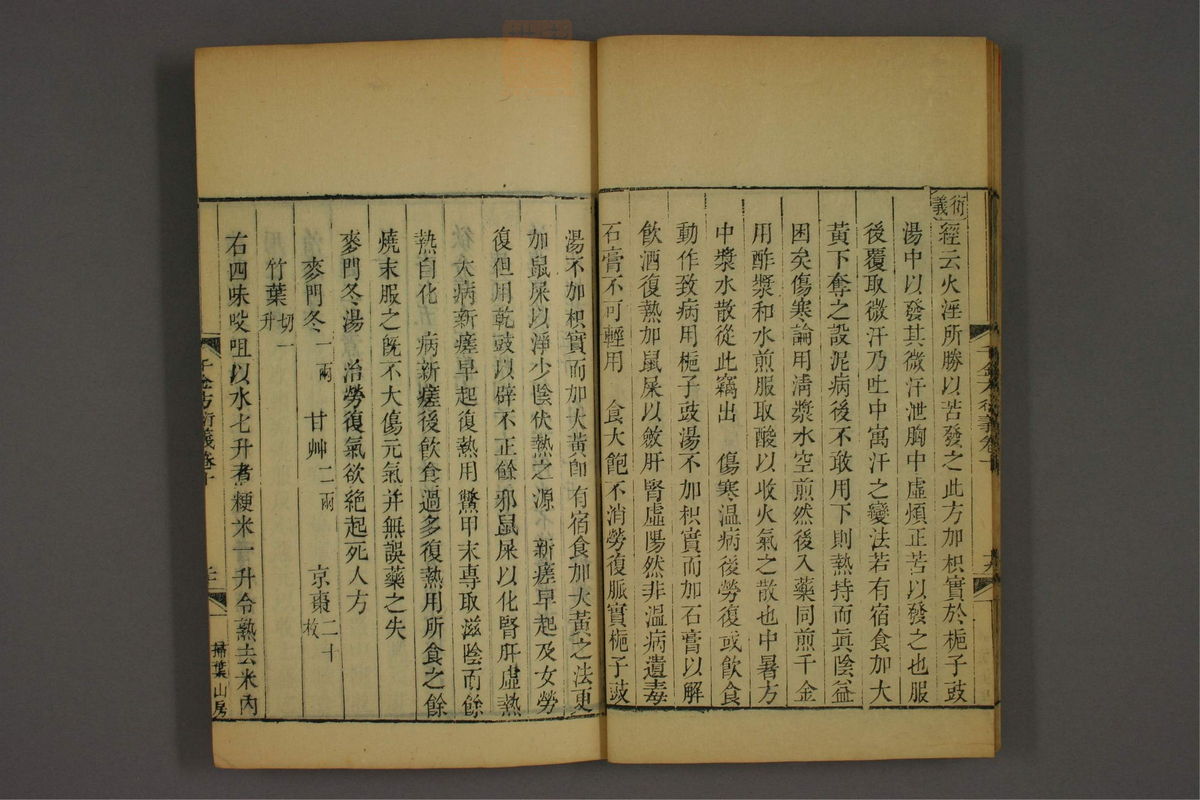 衍義
經云火淫所勝以苦發之此方加枳實於梔子豉
湯中以發其微汗泄胸中虛煩正苦以發之也服
後覆取微汗乃吐中寓汗之變法若有宿食加大
黃下奪之設泥病後不敢用下則熱持而眞陰益
困矣傷寒論用淸漿水空煎然後入藥同煎千金
用酢漿和水煎服取酸以收火氣之散也中暑方
中漿水散從此竊出 傷寒溫病後勞復或飮食
動作致病用梔子豉湯不加枳實而加石膏以解
飮酒復熱加鼠屎以斂肝腎虛陽然非溫病遺毒
石膏不可輕用 食大飽不消勞復脈實梔子豉
湯不加枳實而加大黃卽有宿食加大黃之法更
加鼠屎以淨少陰伏熱之源 新瘥早起及女勞
復但用乾豉以辟不正餘邪鼠屎以化腎肝虛熱
大病新瘥早起復熱用鱉甲末專取滋陰而餘
熱自化 病新瘥後飮食過多復熱用所食之餘
燒末服之旣不大傷元氣并無誤藥之失
麥門冬湯 治勞復氣欲絕起死人方
麥門冬一兩 甘艸二兩 京棗二十枚
竹葉切一升
右四味㕮咀以水七升煮粳米一升令熟去米內
千金方衍義卷十
掃葉山房